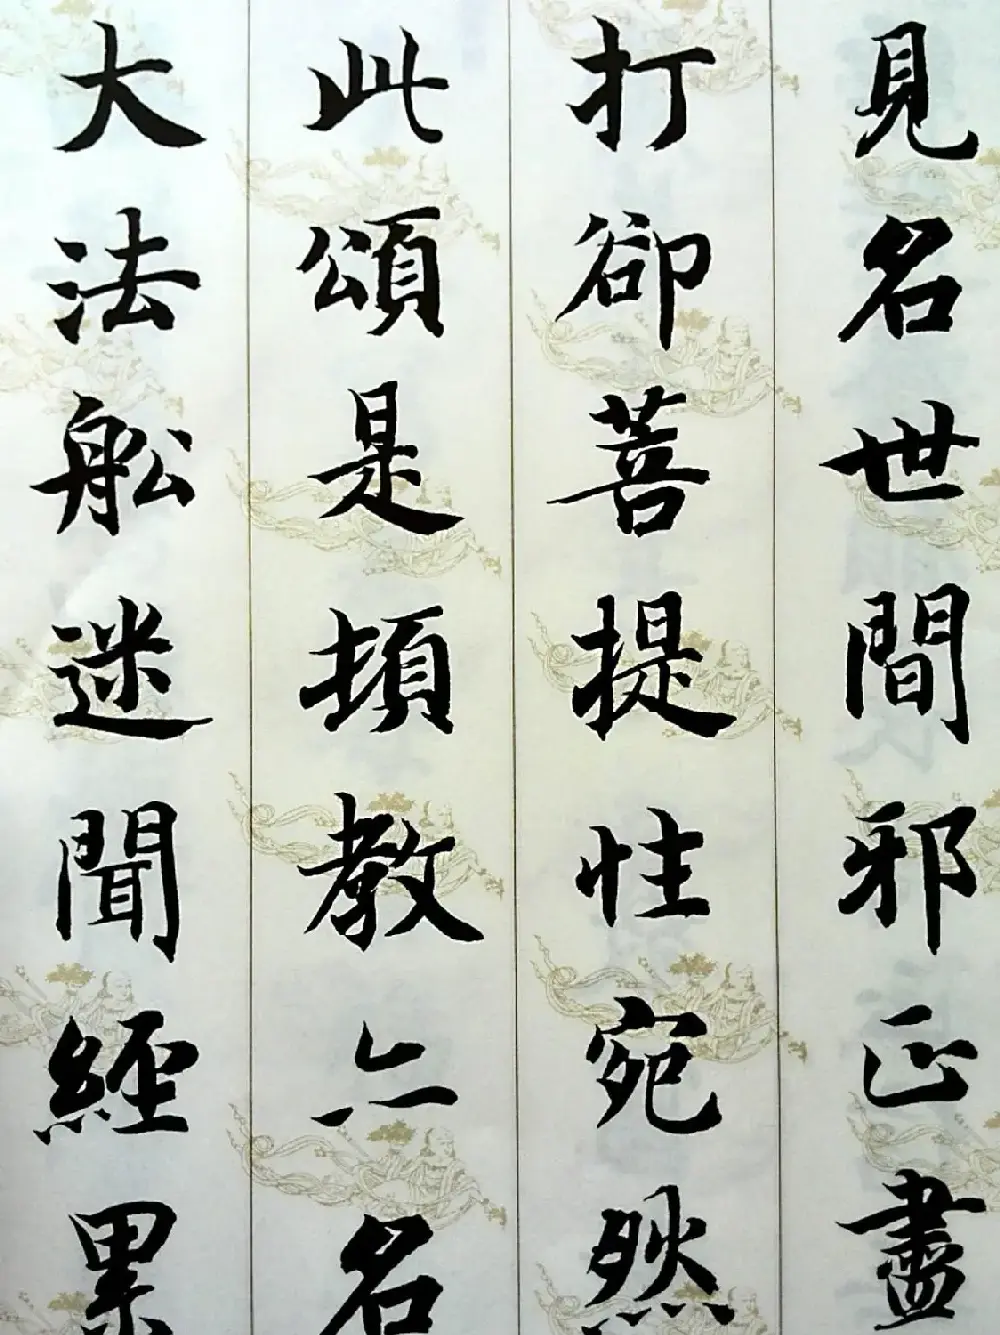 見名世間邪正盡
打卻菩提性宛然
此頌是頓教亦名
大法舩迷聞經累